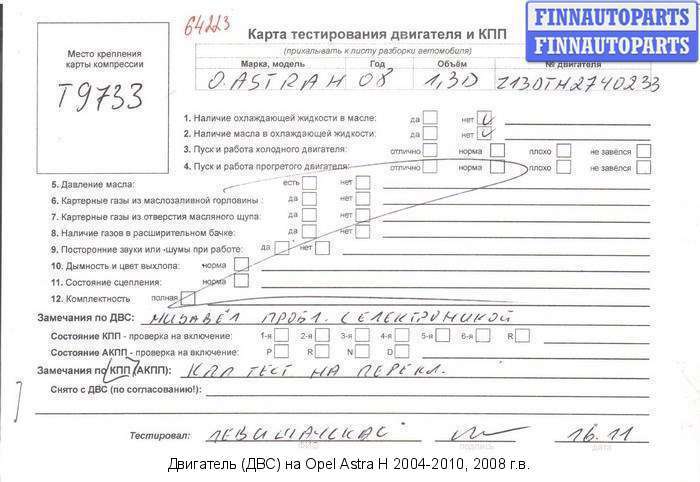 64223
Карта тестирования двигателя и КПП
(прикалывать к листу разборки автомобиля)
FINNAUTOPARTS
FINNAUTOPARTS
Место крепления
карты компрессии
T9733
Марка, модель Год Объём № двигателя
O.ASTRA H 08 1,3D Z13DTH2740233
1. Наличие охлаждающей жидкости в масле: да нет
2. Наличие масла в охлаждающей жидкости: да нет
3. Пуск и работа холодного двигателя: отлично норма плохо не завёлся
4. Пуск и работа прогретого двигателя: отлично норма плохо не завёлся
5. Давление масла: есть нет
6. Картерные газы из маслозаливной горловины: да нет
7. Картерные газы из отверстия масляного щупа: да нет
8. Наличие газов в расширительном бачке: да нет
9. Посторонние звуки или -шумы при работе: да нет
10. Дымность и цвет выхлопа: норма
11. Состояние сцепления: норма
12. Комплектность полная
Замечания по ДВС: ПРОБЛ. С ЕЛЕКТРОНИКОЙ
Состояние КПП - проверка на включение: 1-я 2-я 3-я 4-я 5-я 6-я R
Состояние АКПП - проверка на включение: P R N D
Замечания по КПП (АКПП): КПП ТЕСТ НА ПЕРЕКЛ.
Снято с ДВС (по согласованию!):
Тестировал: 16.11
подпись дата
Двигатель (ДВС) на Opel Astra H 2004-2010, 2008 г.в.